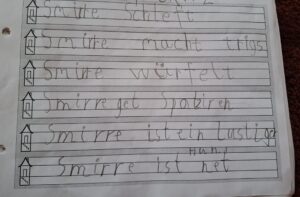 Smirre Schleft
Smirre macht trigs
Smirre würfelt
Smirre get Spaziren
Smirre ist ein Lustiger
Hund
Smirre ist net